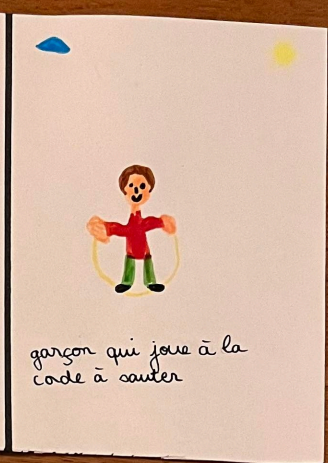 garçon qui joue à la
corde à sauter